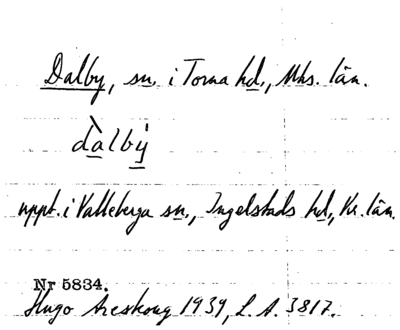 Dalby, sn. i Torna hd., Mhs. län.
dàlbý
uppt. i Valleberga sn., Ingelstads hd., Kr. län.
Nr 5834.
Hugo Areskoug 1939, L. A. 3817.